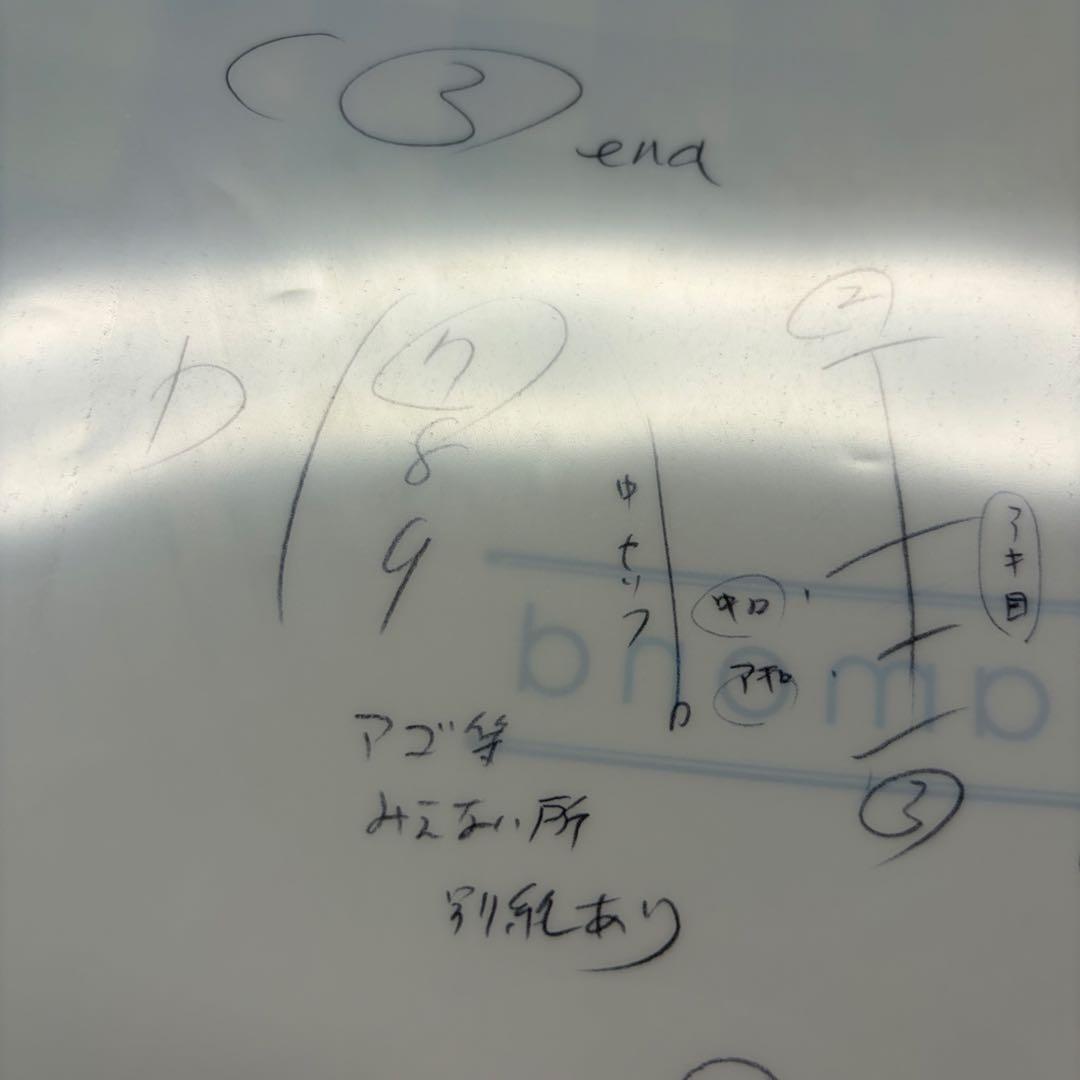 ③
end
②
D
⑦
8
9
中セリフ
アキ目
中口
アキ口
D
③
アゴ等
みえない所
別紙あり